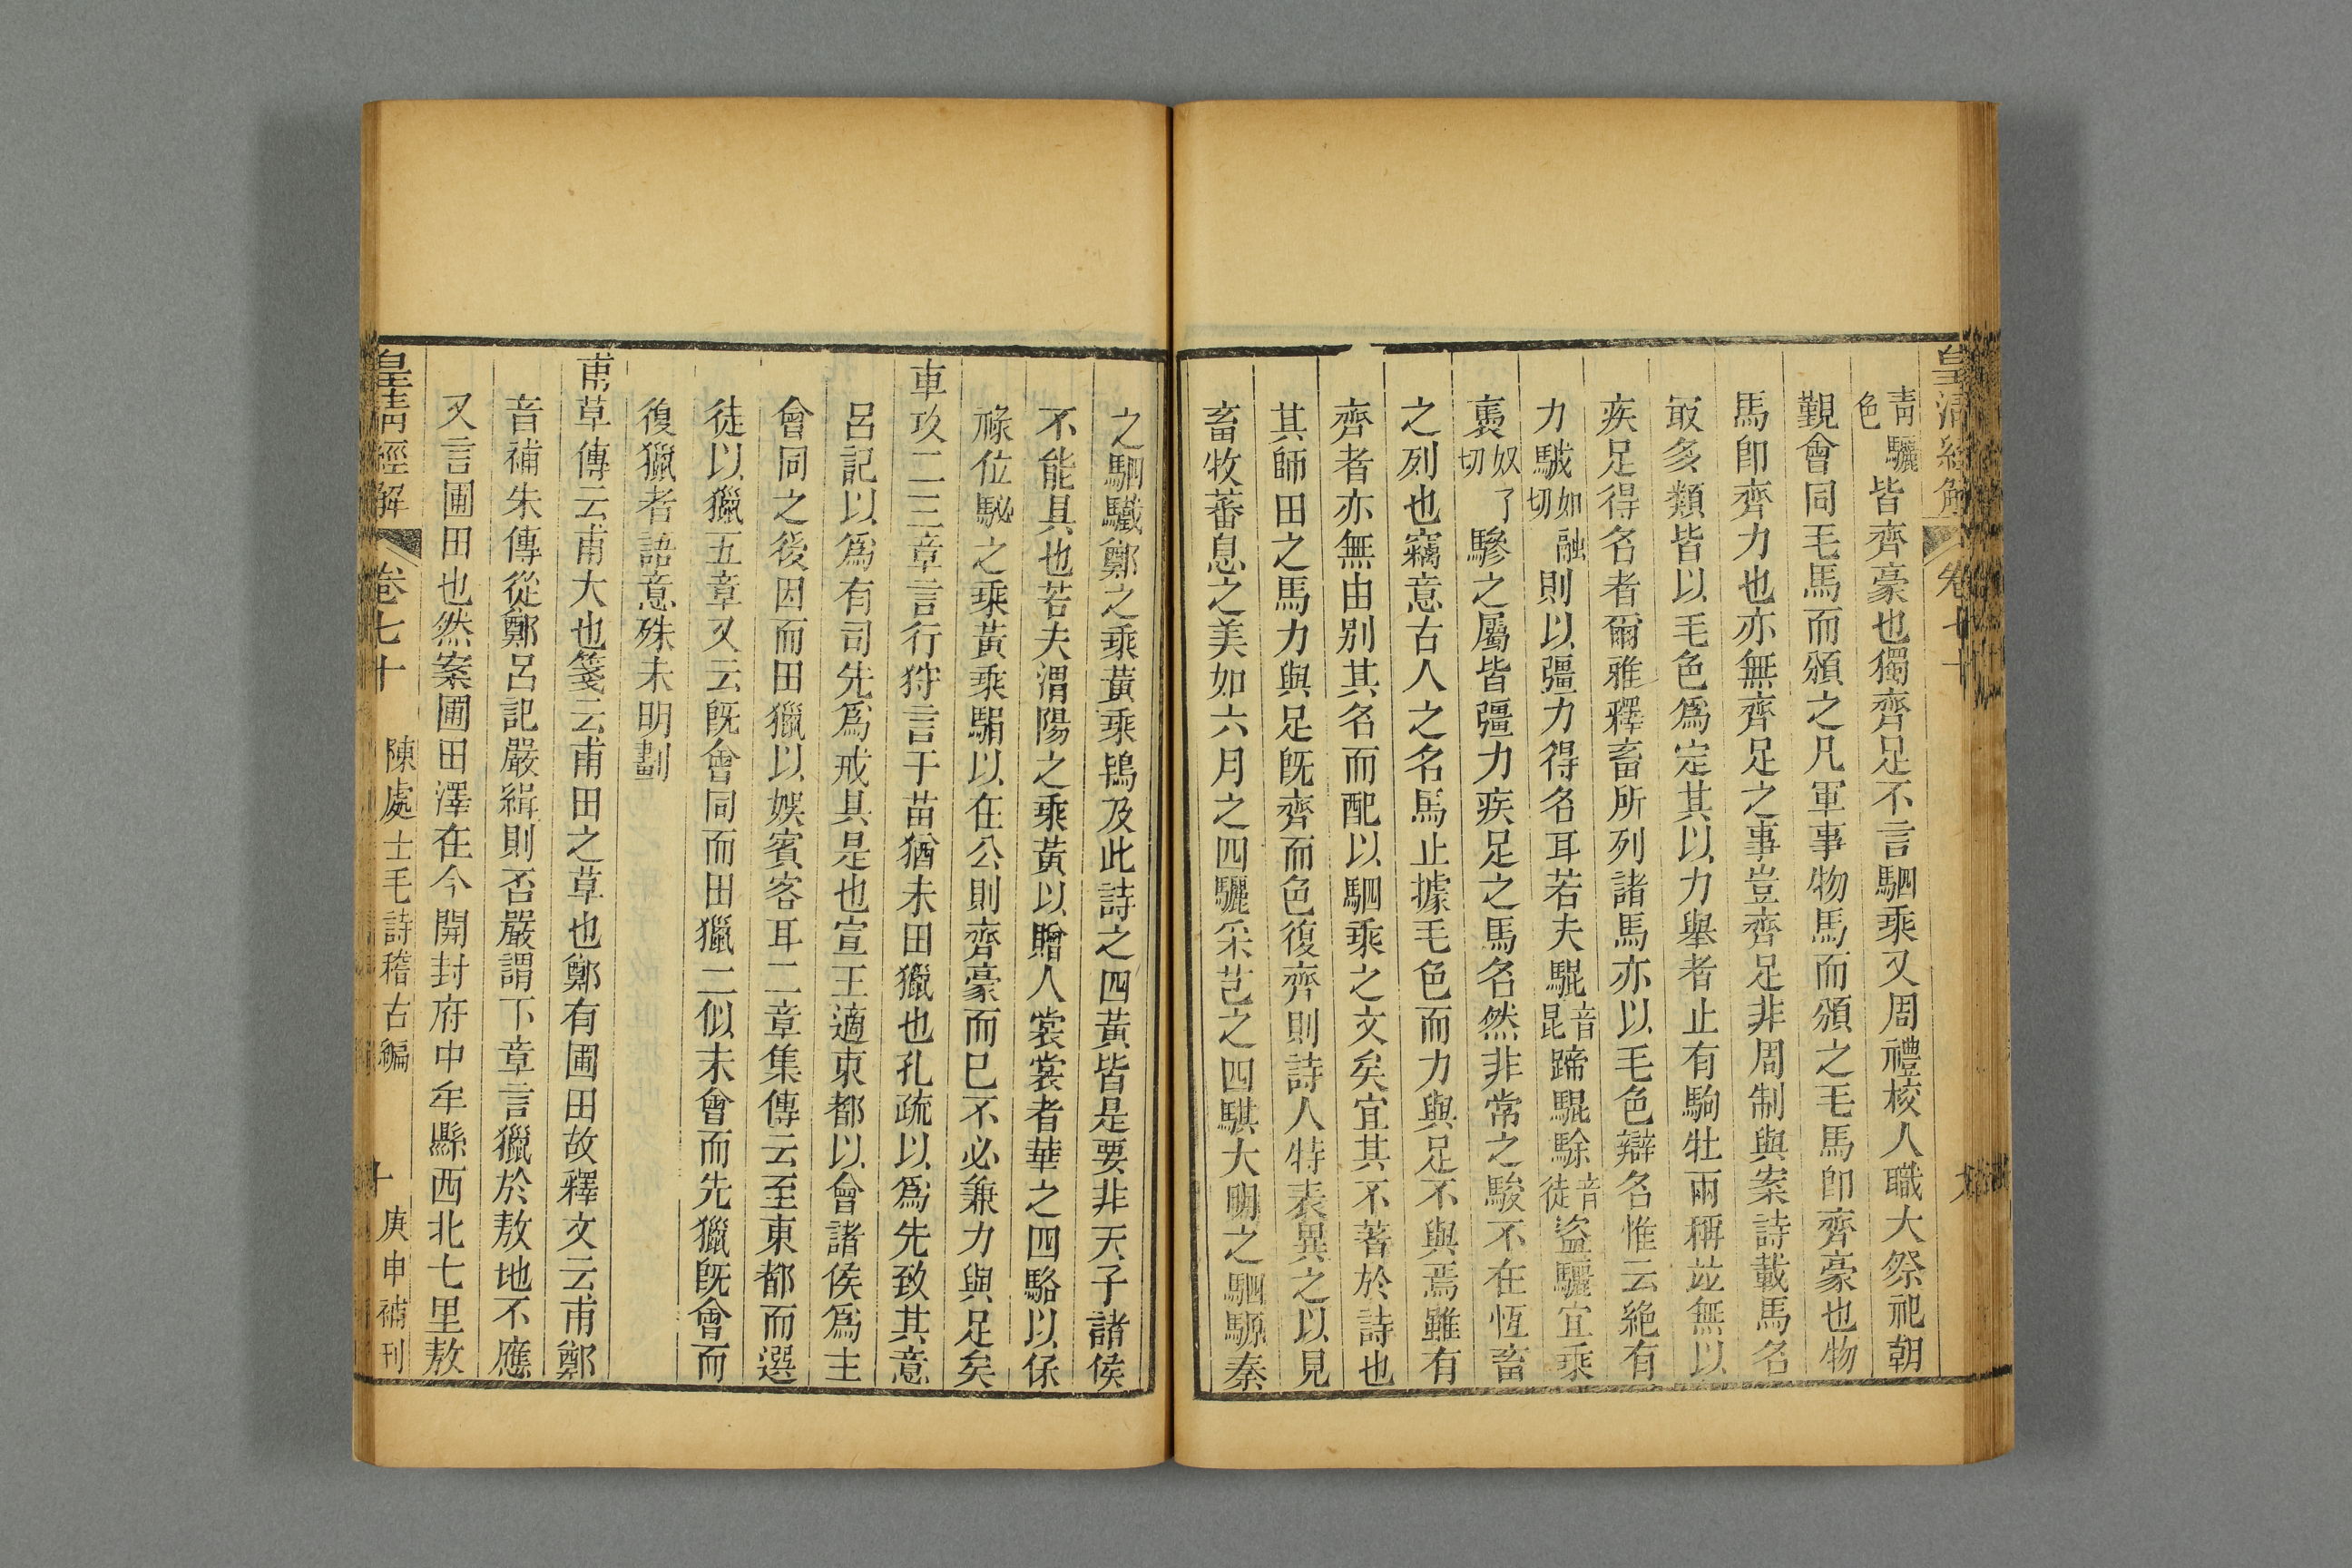 皇淸經解 卷七十 九
靑驪色皆齊豪也獨齊足不言駟乘又周禮校人職大祭祀朝
覲會同毛馬而頒之凡軍事物馬而頒之毛馬卽齊豪也物
馬卽齊力也亦無齊足之事豈齊足非周制與案詩載馬名
㝡多類皆以毛色爲定其以力舉者止有駒牡兩稱竝無以
疾足得名者爾雅釋畜所列諸馬亦以毛色辯名惟云絶有
力駥如融切則以彊力得名耳若夫騉音昆蹄騉駼音徒盜驪宜乘
褭奴了切驂之屬皆彊力疾足之馬名然非常之駿不在恆畜
之列也竊意古人之名馬止據毛色而力與足不與焉雖有
齊者亦無由别其名而配以駟乘之文矣宜其不著於詩也
其師田之馬力與足旣齊而色復齊則詩人特表異之以見
畜牧蕃息之美如六月之四驪采芑之四騏大明之駟騵秦
之駟驖鄭之乘黃乘鴇及此詩之四黃皆是要非天子諸侯
不能具也若夫渭陽之乘黃以贈人裳裳者華之四駱以保
祿位駜之乘黃乘駽以在公則齊豪而已不必兼力與足矣
車攻二三章言行狩言于苗猶未田獵也孔疏以爲先致其意
呂記以爲有司先爲戒具是也宣王適東都以會諸侯爲主
會同之後因而田獵以娛賓客耳二章集傳云至東都而選
徒以獵五章又云旣會同而田獵二似未會而先獵旣會而
復獵者語意殊未明劃
甫草傳云甫大也箋云甫田之草也鄭有圃田故釋文云甫鄭
音補朱傳從鄭呂記嚴緝則否嚴謂下章言獵於敖地不應
又言圃田也然案圃田澤在今開封府中牟縣西北七里敖
皇淸經解 卷七十 陳處士毛詩稽古編 十 庚申補刊